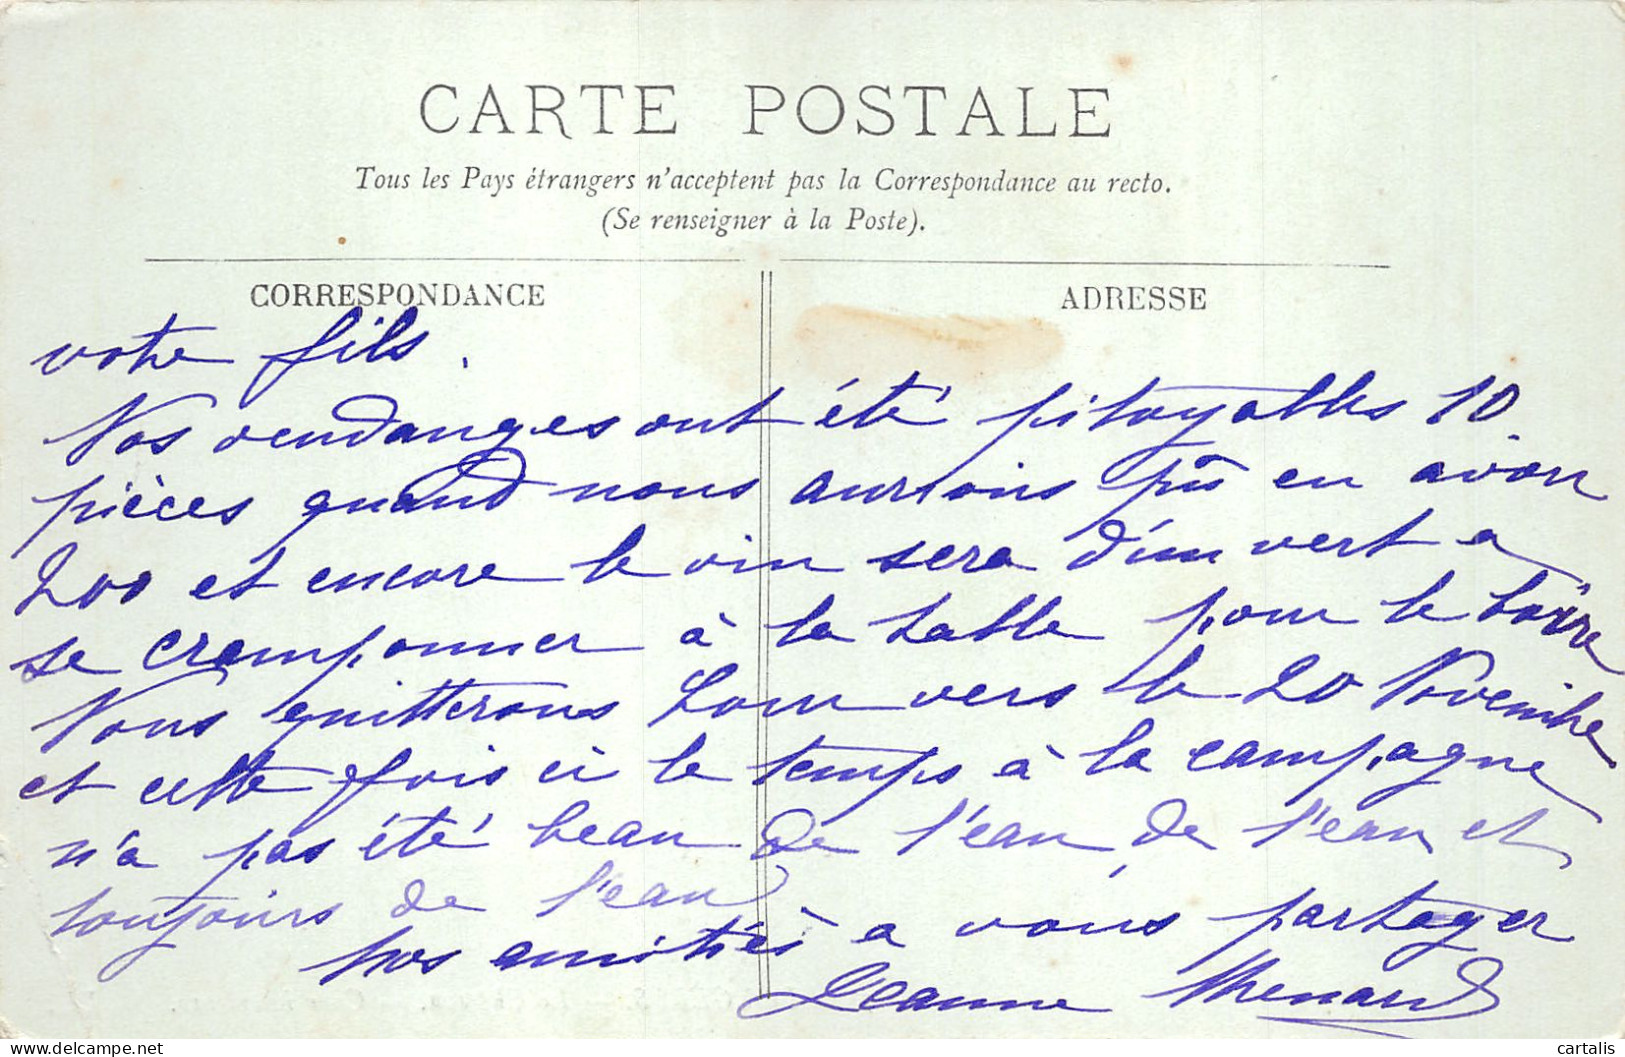 CARTE POSTALE
Tous les Pays étrangers n'acceptent pas la Correspondance au recto.
(Se renseigner à la Poste).
CORRESPONDANCE
ADRESSE
votre fils.
Nos vendanges ont été pitoyables 10
pièces quand nous aurions pû en avoir
200 et encore le vin sera d'un vert a
se cramponner à la table pour le boire
Nous quitterons vers le 20 Novembre
et cette fois ci le temps à la campagne
n'a pas été beau de l'eau, de l'eau et
toujours de l'eau
Nos amitiés a vous partager
Jeanne Menard
delcampe.net
cartalis